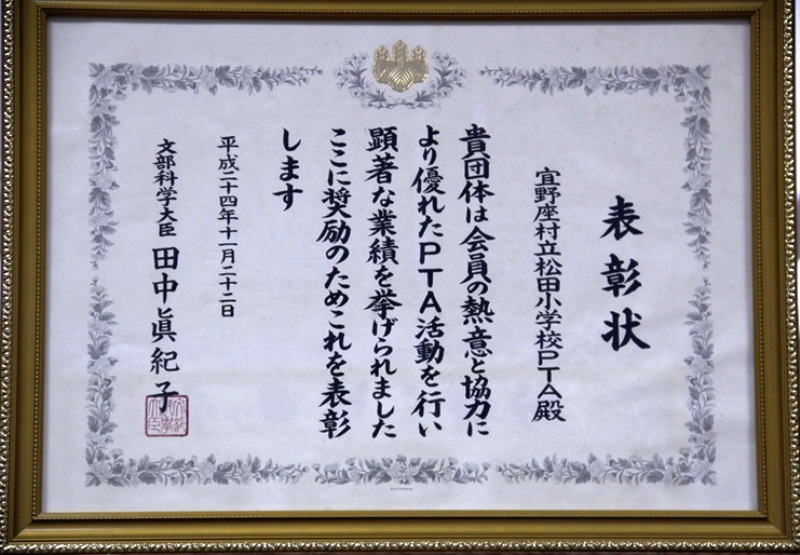 表彰状
宜野座村立松田小学校PTA殿
貴団体は会員の熱意と協力に
より優れたPTA活動を行い
顕著な業績を挙げられました
ここに奨励のためこれを表彰
します
平成二十四年十一月二十二日
文部科学大臣 田中眞紀子